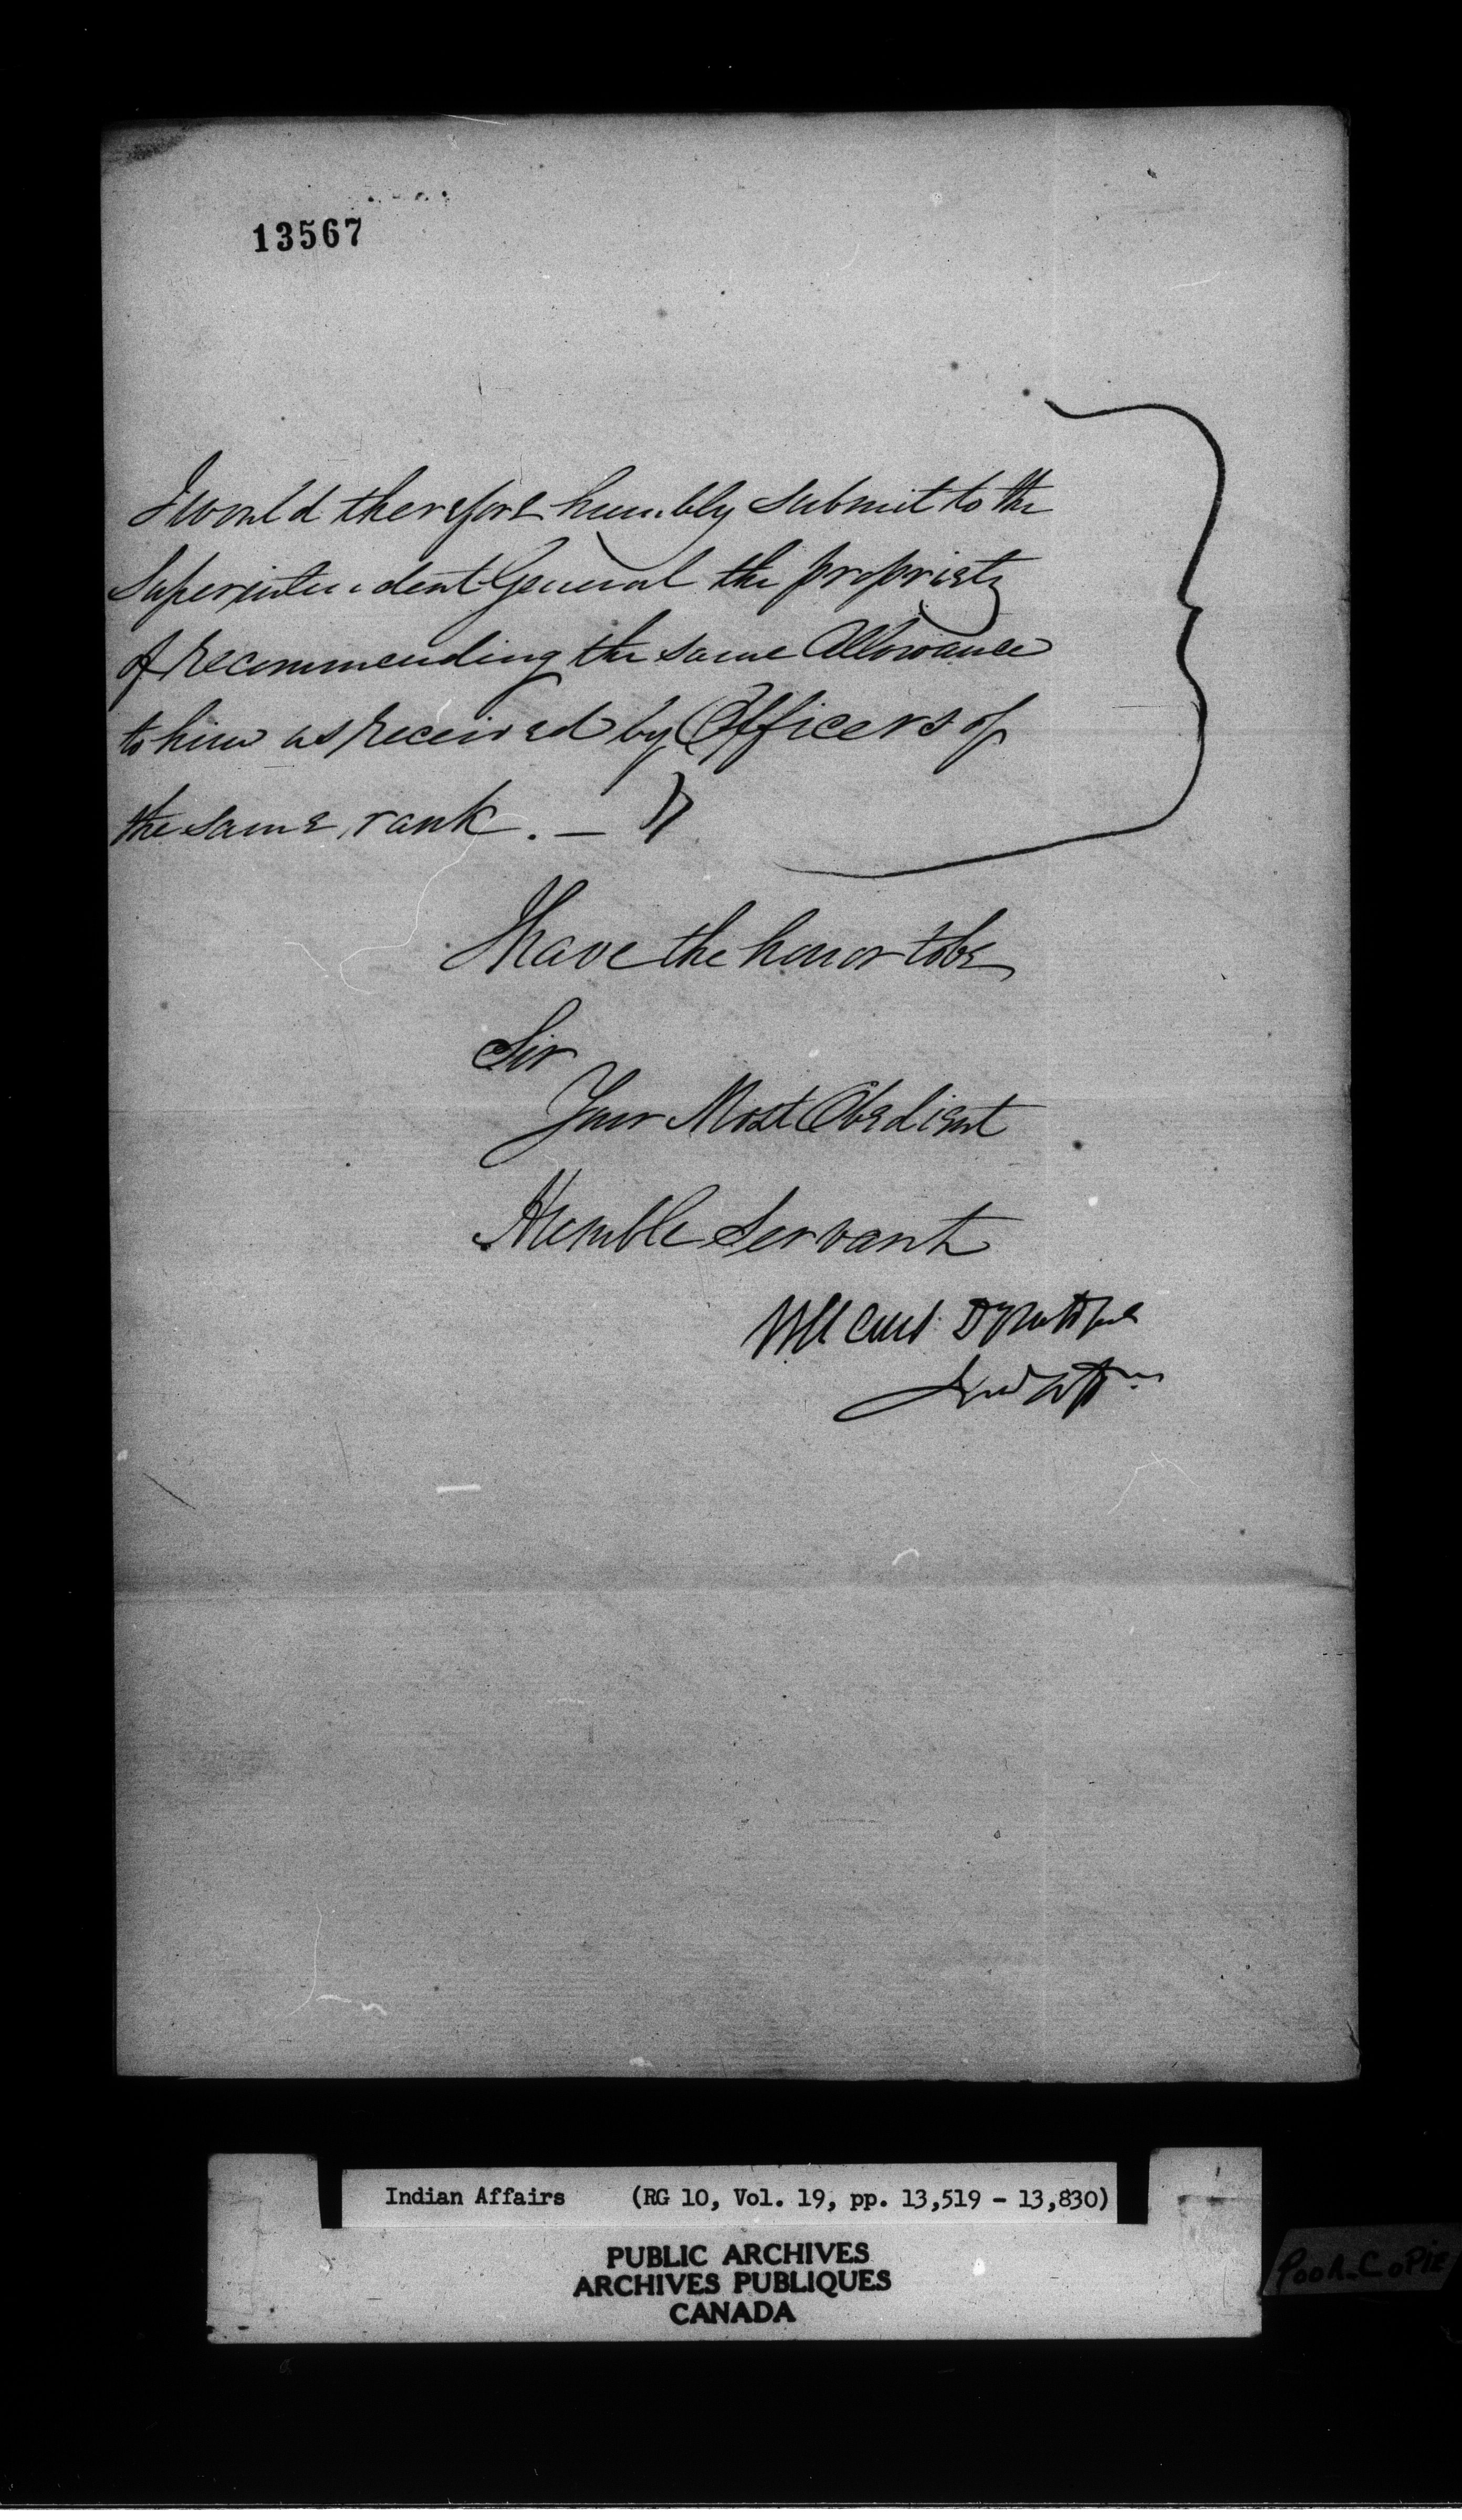 13567
I would therefore humbly submit to the
Superintendent General the propriety
of recommending the same Allowance
to him as received by Officers of
the same rank. —
I have the honor to be
Sir
Your Most Obedient
Humble Servant
Indian Affairs (RG 10, Vol. 19, pp. 13,519 - 13,830)
PUBLIC ARCHIVES
ARCHIVES PUBLIQUES
CANADA
POOR COPIE